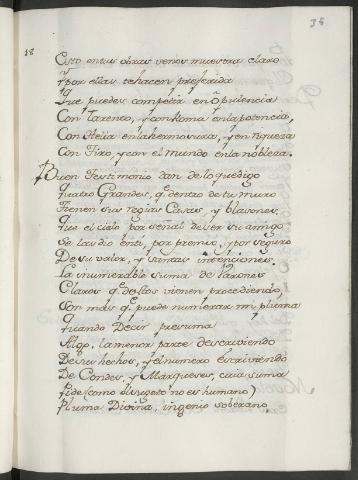 38
18
Esto en tus obras venos muestra claro
Y por ellas te hacen preferida
Que puedes competir en opulencia
Con Tarento, y con Roma en la potencia,
Con Atenas en la hermosura, y en riqueza
Con Tiro, y con el mundo en la nobleza.
Buen Testimonio dan de lo que digo
quatro Grandes, q.e dentro de tu muro
Tienen sus regias Casas, y blasones,
Que el cielo por señal del ser su amigo
Se las dio en ti, por premio, y por seguro
De su valor, y santas intenciones.
La inumerable suma de Varones
Claros q.e de estos vienen procediendo,
Son mas q.e puede numerar mi pluma
quando Decir presuma
Algo, la menor parte descriviendo
De sus hechos, y el numero escriviendo
De Condes, y Marqueses, cuia suma
Pide (como el sugeto no es humano)
Pluma Divina, ingenio soberano,